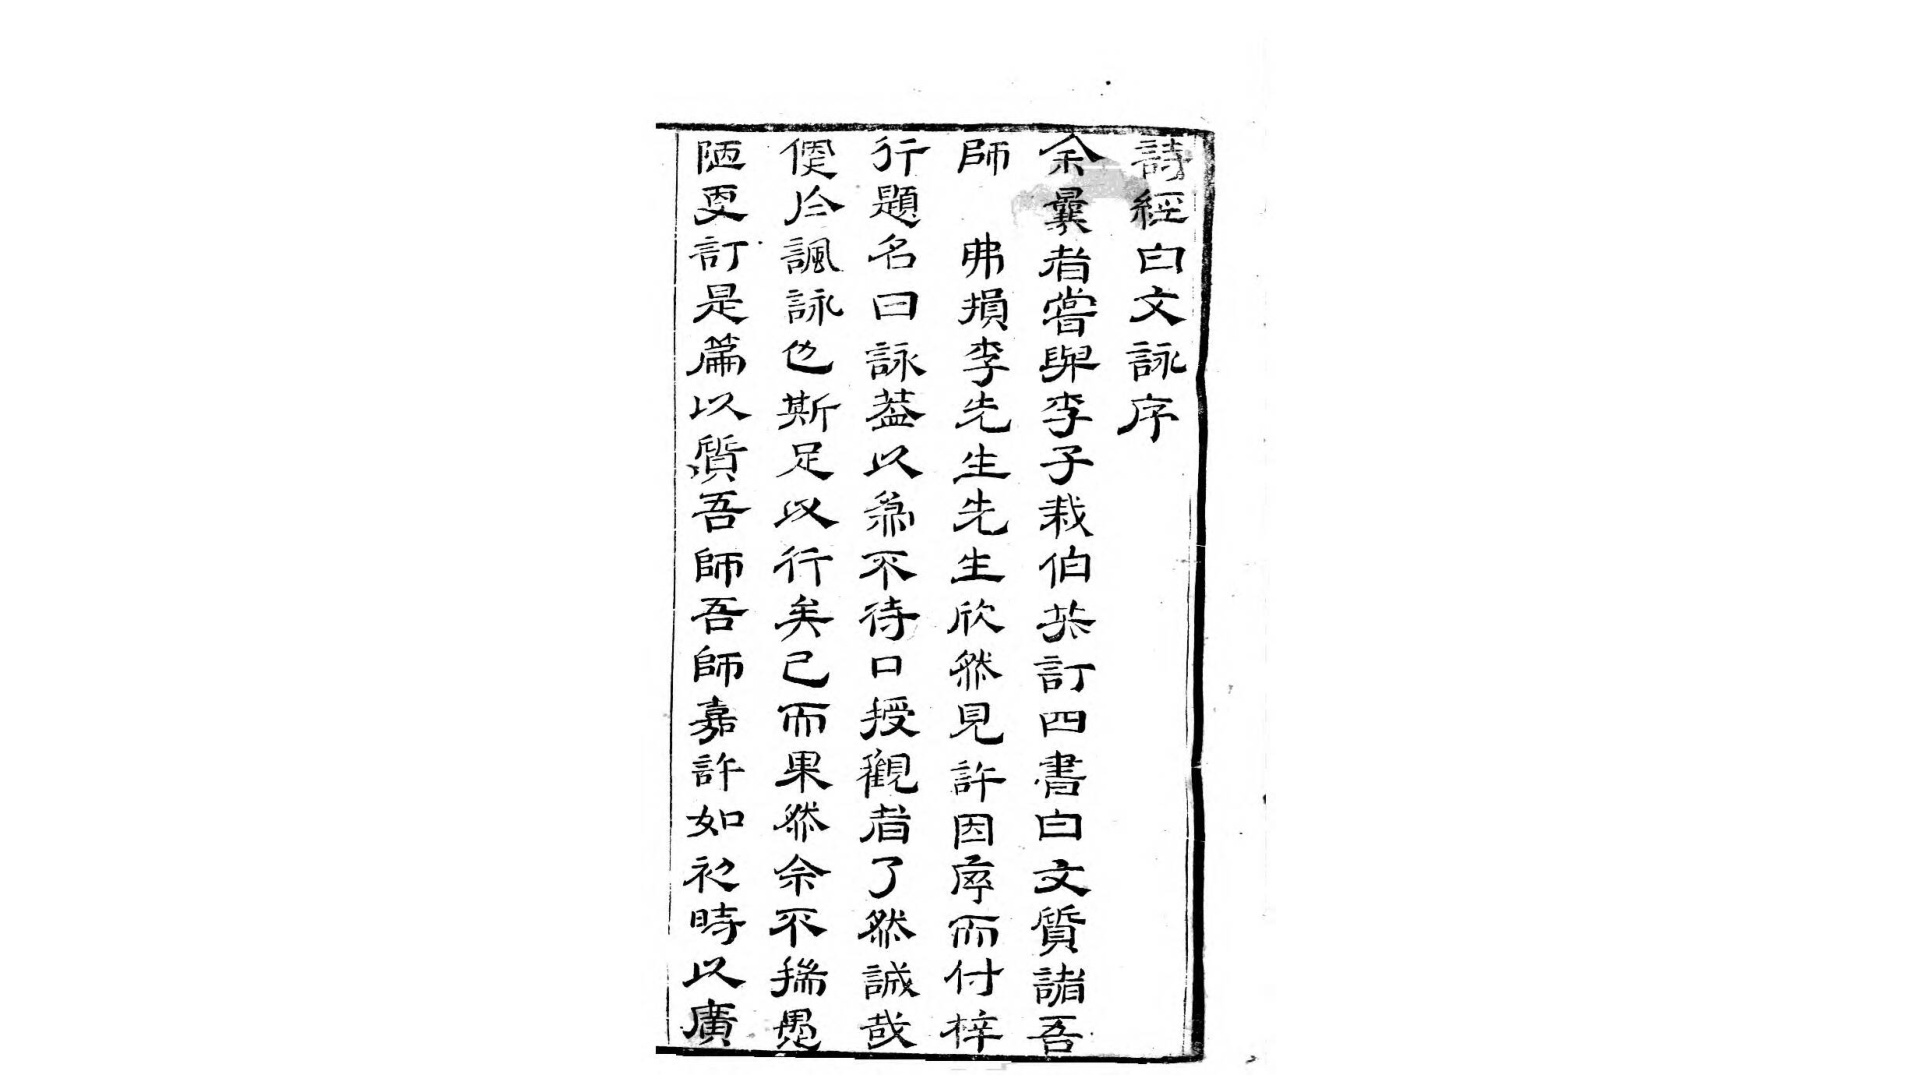 詩經白文詠序
余曩者嘗與李子栽伯共訂四書白文質諸吾
師　弗損李先生先生欣然見許因序而付梓
行題名曰詠葢以為不待口授觀者了然誠哉
便於諷詠也斯足以行矣已而果然余不揣愚
陋更訂是篇以質吾師吾師嘉許如初時以廣